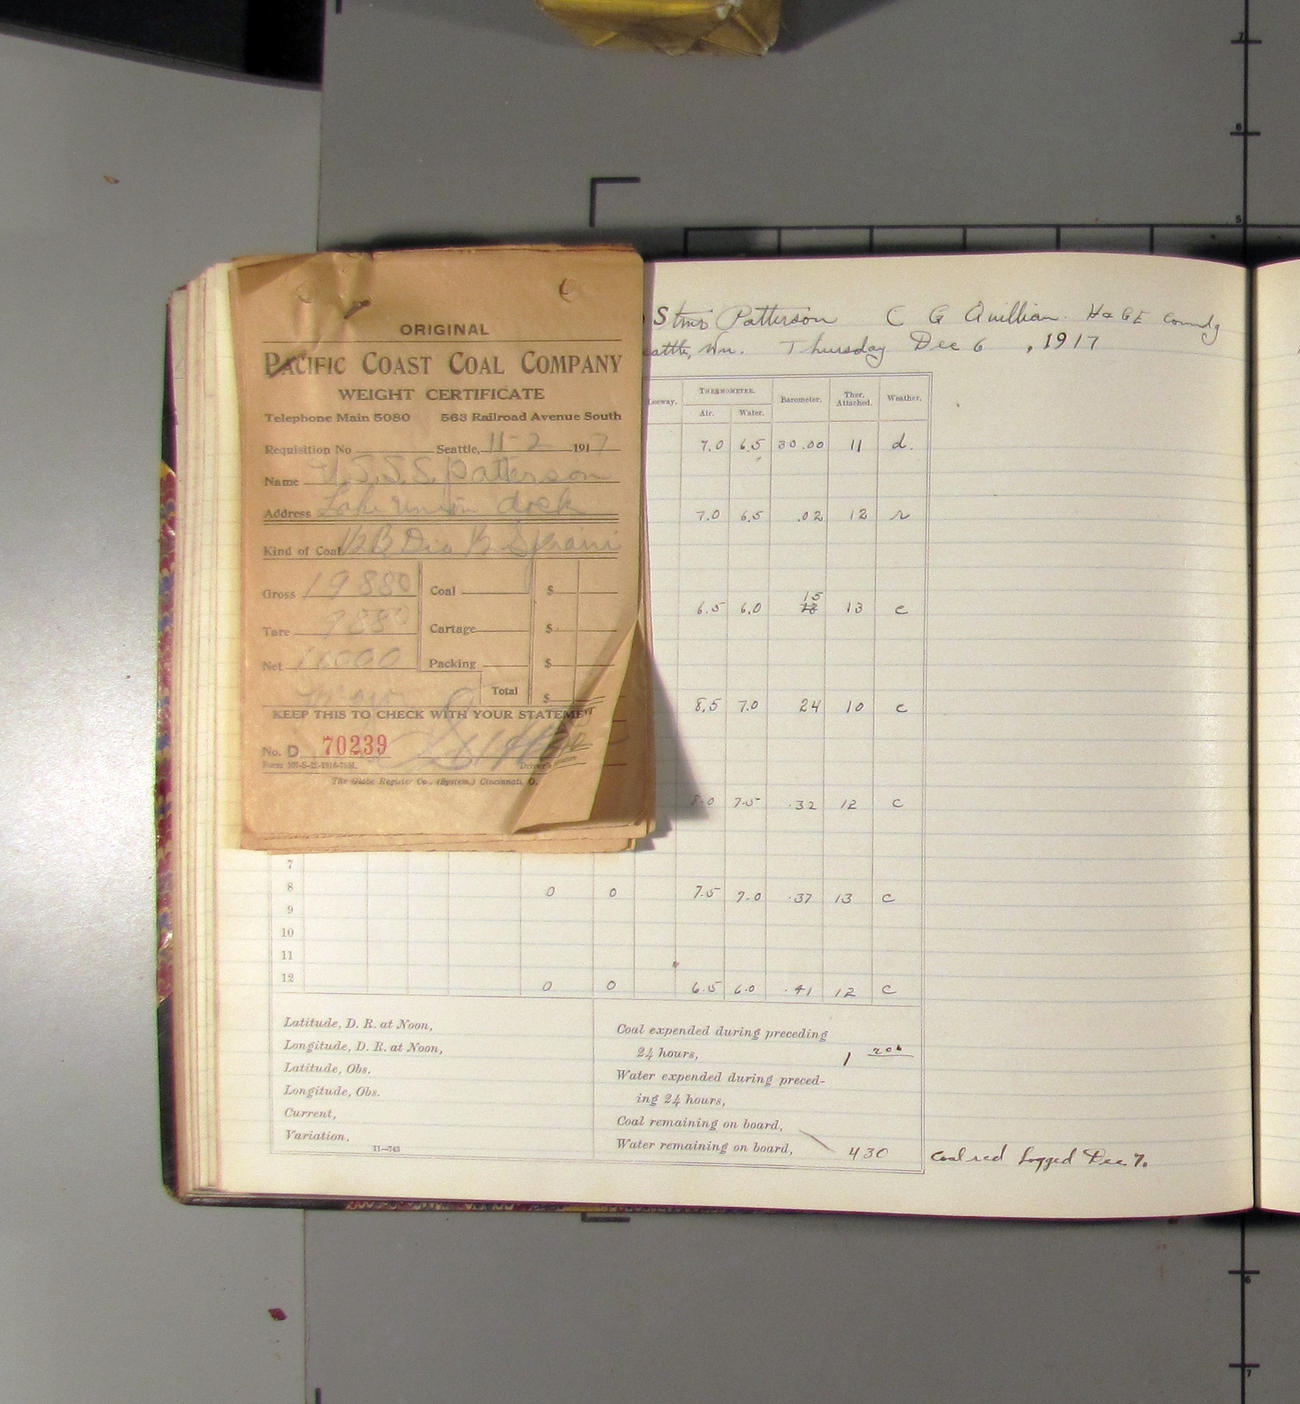 ORIGINAL
PACIFIC COAST COAL COMPANY
WEIGHT CERTIFICATE
Telephone Main 5080 563 Railroad Avenue South
Requisition No Seattle, 11-2 1917
Name U.S.S.S. Patterson
Address Lake Union dock
Kind of Coal
Gross 19880 Coal $
Tare 7880 Cartage $
Net Packing $
Total $
KEEP THIS TO CHECK WITH YOUR STATEMENT
No. D 70239
Driver
The Globe Register Co., (System.) Cincinnati, O.
Stmr Patterson C G Quillian. H & GE Comndg
eattle, Wn. Thursday Dec 6, 1917
Leeway. THERMOMETER. Barometer. Ther. Attached. Weather.
Air. Water.
7.0 6.5 30.00 11 d.
7.0 6.5 .02 12 r
15
6.5 6.0 13 c
8.5 7.0 24 10 c
8.0 7.5 .32 12 c
7
8 0 0 7.5 7.0 .37 13 c
9
10
11
12 0 0 6.5 6.0 .41 12 c
Latitude, D. R. at Noon,
Longitude, D. R. at Noon,
Latitude, Obs.
Longitude, Obs.
Current,
Variation.
11—743
Coal expended during preceding
24 hours, 1
Water expended during preced-
ing 24 hours,
Coal remaining on board,
Water remaining on board, 430
Coal recd logged Dec 7.
7
6
5
6
7